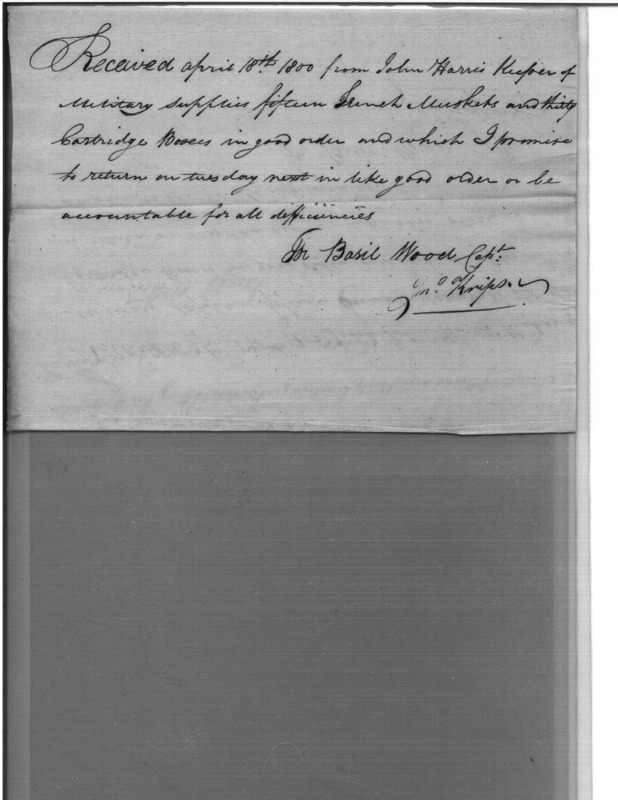 Received april 18th. 1800 from John Harris Keeper of
Military supplies fifteen French Muskets and thirty
Cartridge Boxes in good order and which I promise
to return on tuesday next in like good order or be
accountable for all defficiencies
For Basil Wood Capt:
Jno.